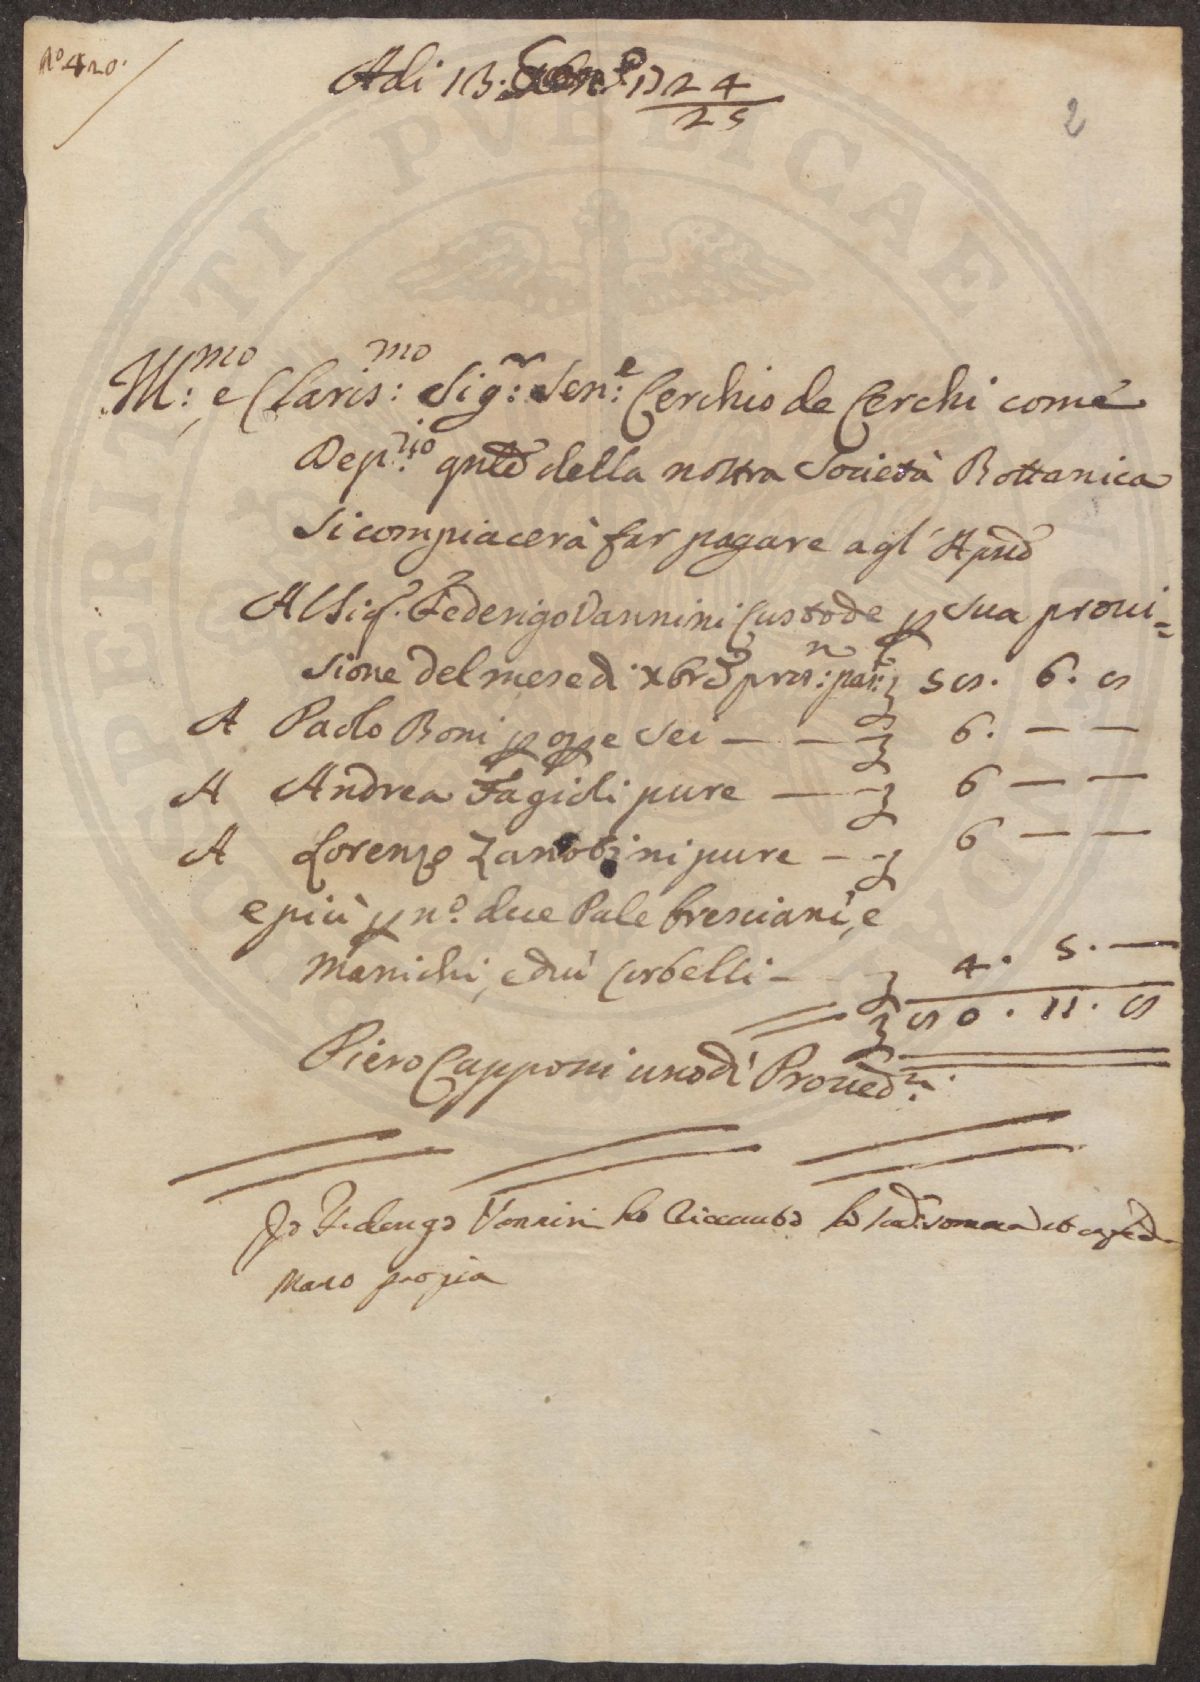 N.º 420.
Adi 13. Gen.º 1724
25
2
Ill:mo e Claris:mo Sig:r Sen:e Cerchio de Cerchi come
Dep:rio gnle della nostra Società Bottanica
Si compiacerà far pagare agl'
Al Sig.r Federigo Vannini Custode p sua provi=
sione del mese di xbre
6.
A Paolo Boni p op.e Sei — — 6. — —
A Andrea Fagioli pure — — 6 — —
A Lorenzo Zanobini pure — — 6 — —
e più p n.º due Pale bresciani, e
Manichi, e dui Corbelli — 4. 5. —
0. 11.
Piero Capponi uno di Proved:ri
Io Federigo Vannini ho Riceuuto la somma
Mano propia